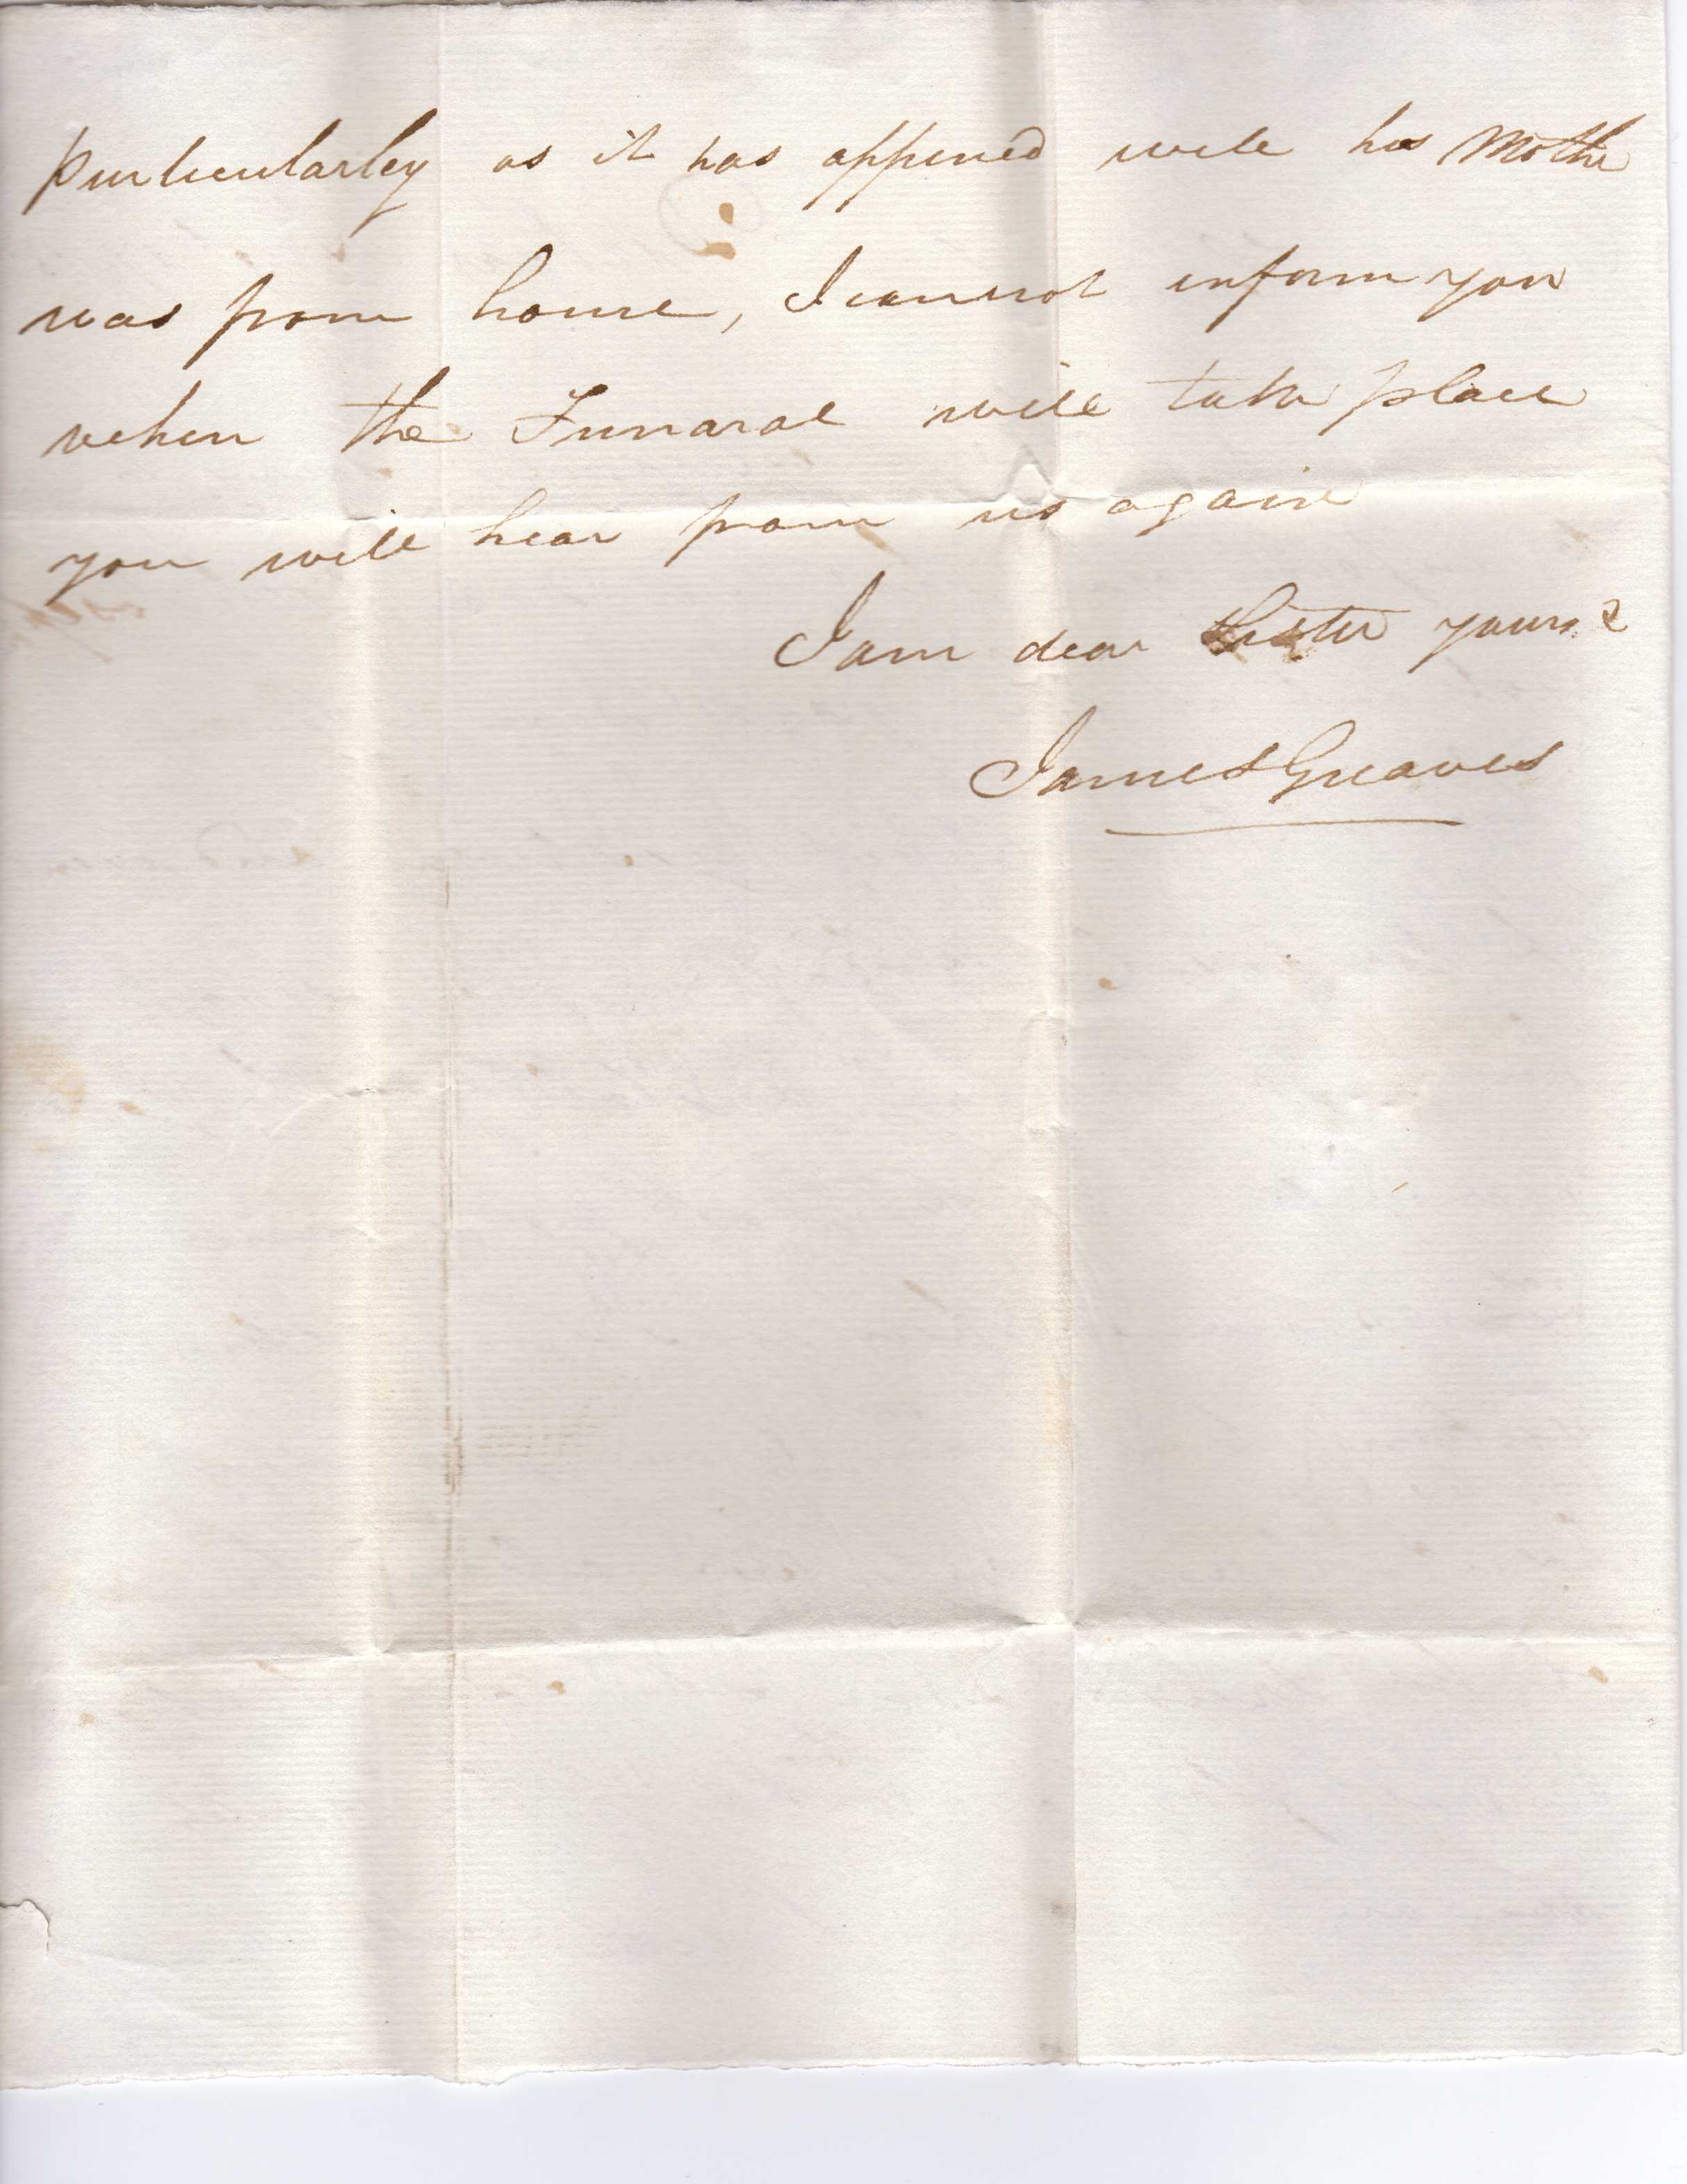 particularley as it has appened wile his Mother
was from home, I cannot inform you
when the Funaral will take place
you will hear from us again
I am dear Sister yours &
James Greaves